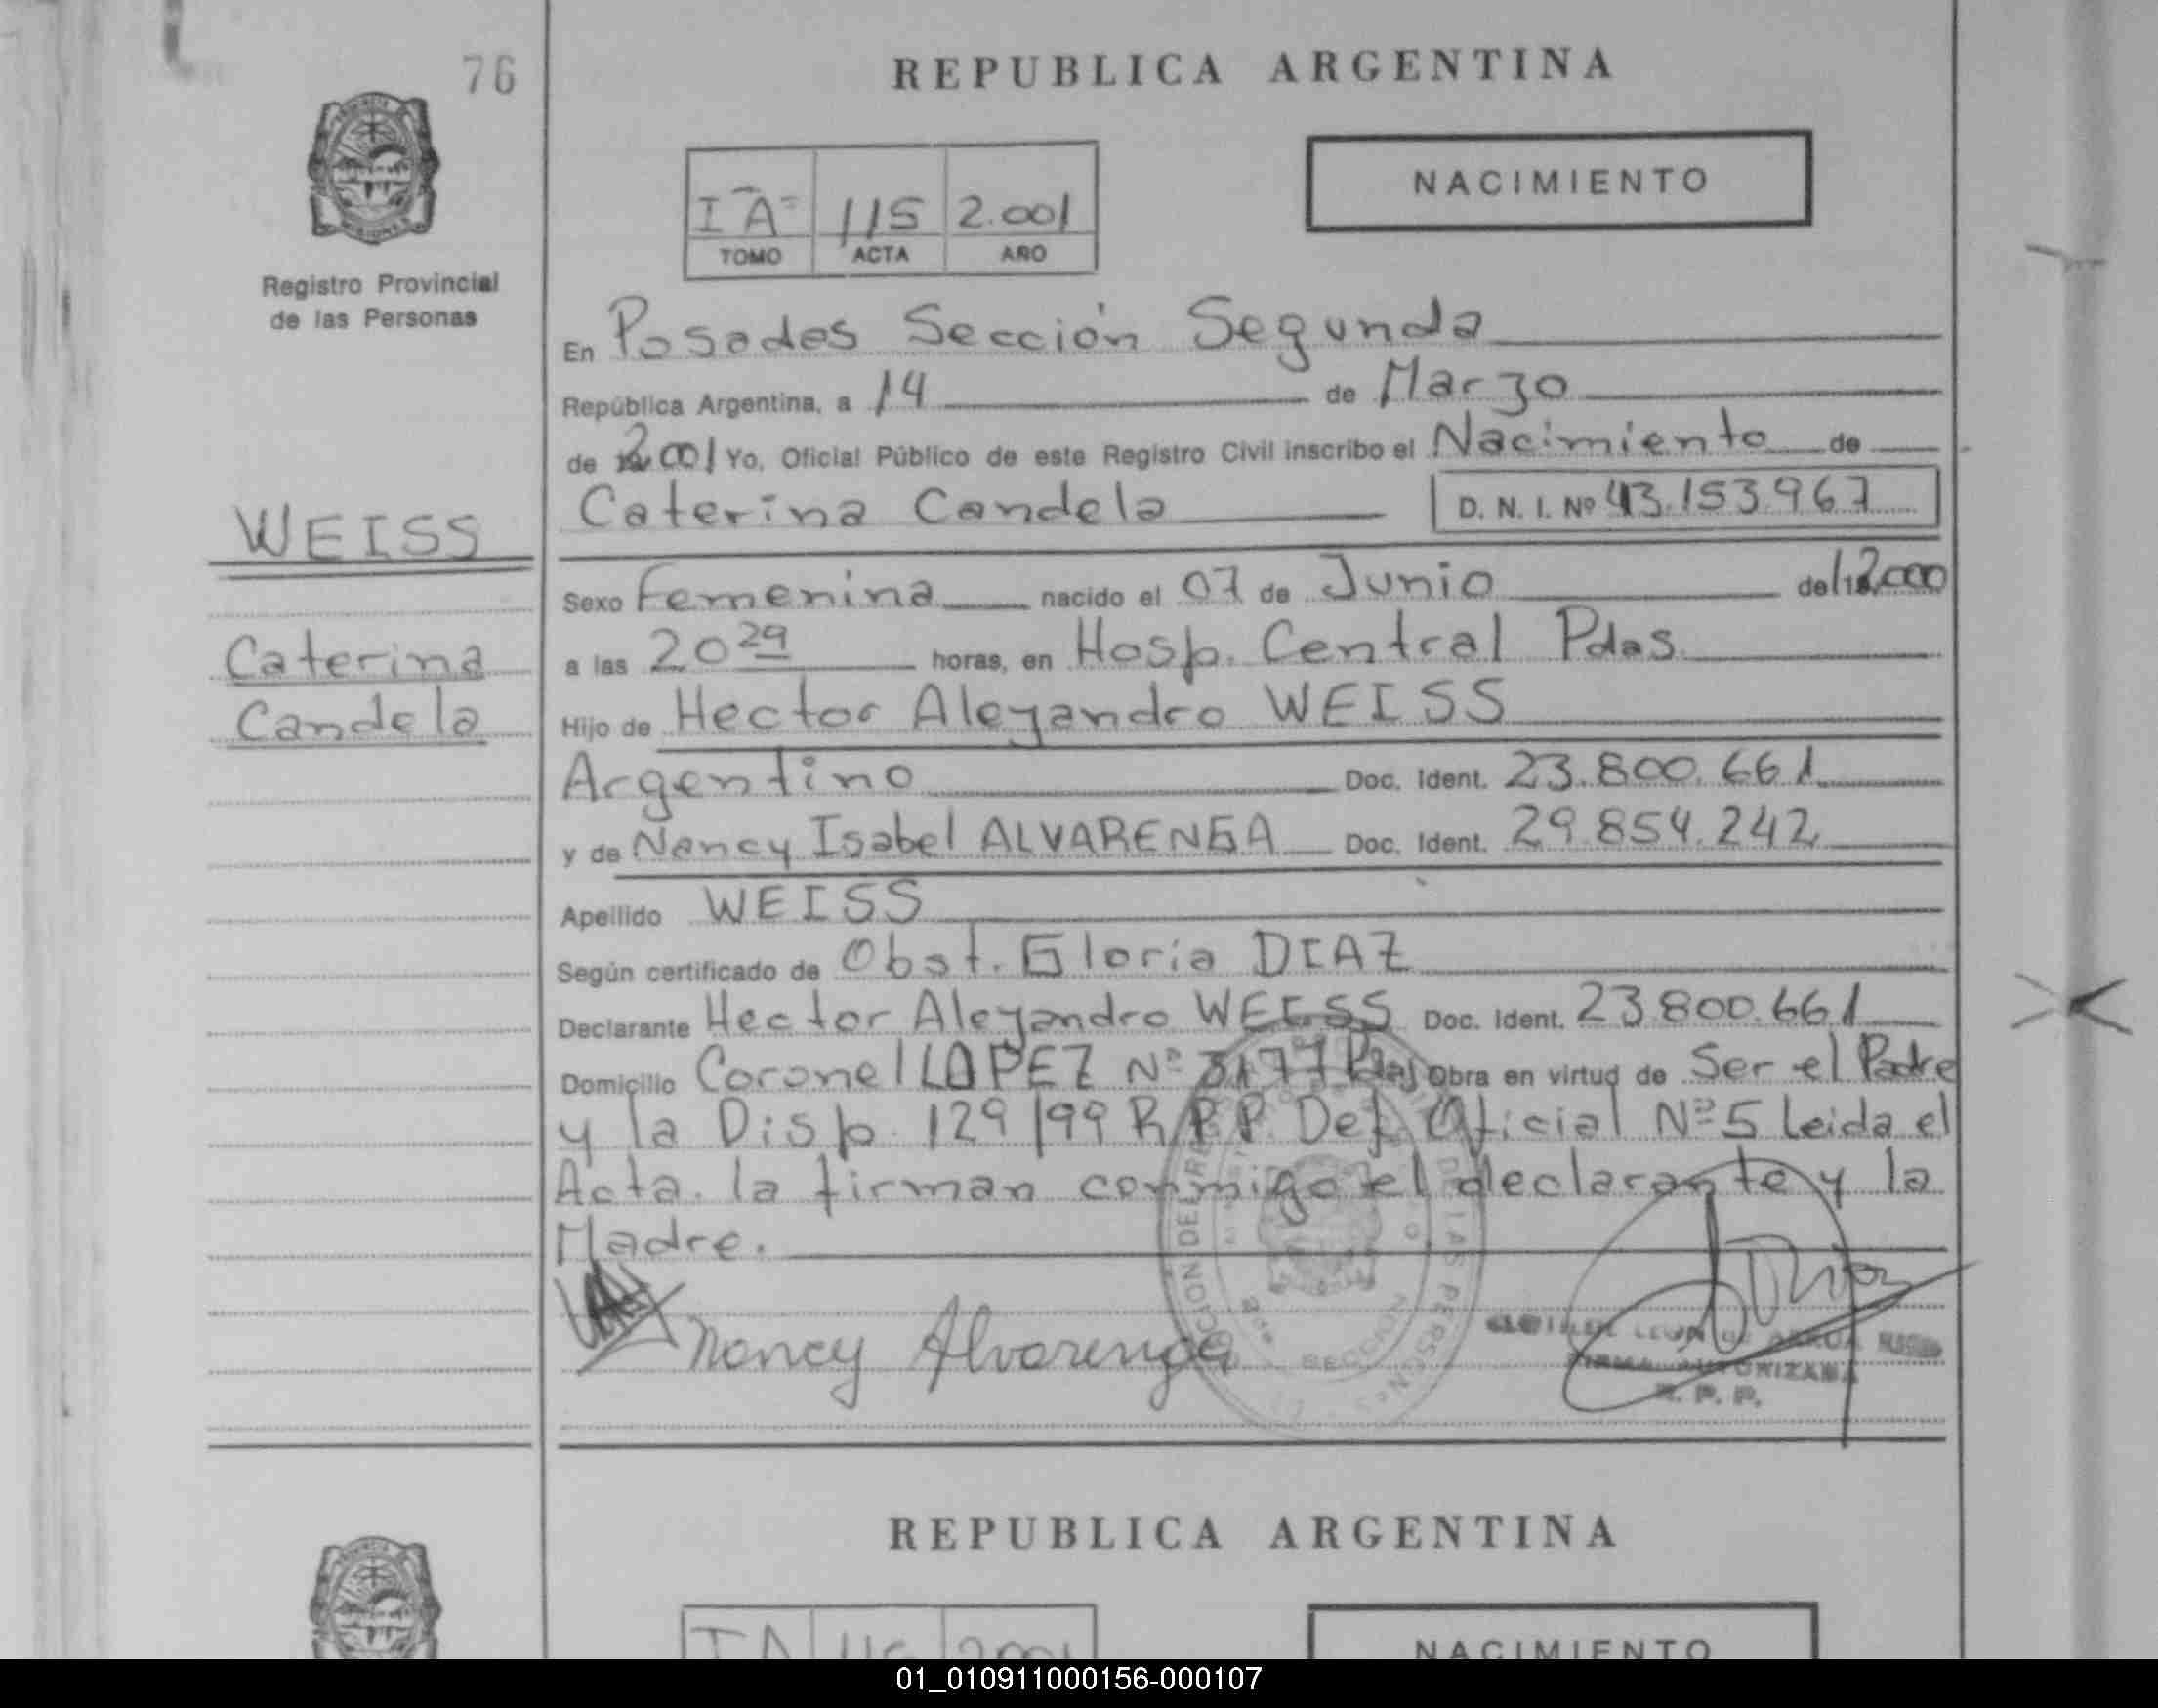 76
REPUBLICA ARGENTINA
NACIMIENTO
I A 115 2.001
TOMO ACTA AÑO
Registro Provincial
de las Personas
En Posadas Sección Segunda
República Argentina, a 14 de Marzo
de 2001 Yo, Oficial Público de este Registro Civil inscribo el Nacimiento de
Caterina Candela D. N. I. Nº 43.153.967
WEISS
Sexo Femenina nacido el 07 de Junio del 2000
Caterina
Candela
a las 20 29 horas, en Hosp. Central Pdas
Hijo de Hector Aleyandro WEISS
Argentino Doc. Ident. 23.800.661
y de Nancy Isabel ALVARENGA Doc. Ident. 29.854.242
Apellido WEISS
Según certificado de Obst. Gloria DIAZ
Declarante Hector Aleyandro WEISS Doc. Ident. 23.800.661
Domicilio Coronel LOPEZ Nº 3177 Pdas Obra en virtud de Ser el Padre
y la Disp. 129/99 R.P.P. Def. Oficial Nº 5 Leida el
Acta. la firman conmigo el declarante y la
Madre.
Nancy Alvarenga
FIRMA AUTORIZADA
R. P. P.
REPUBLICA ARGENTINA
NACIMIENTO
01_010911000156-000107